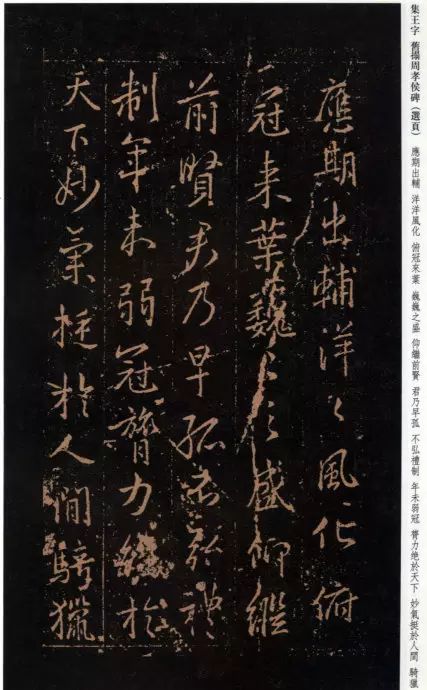 集王字 舊搨周孝侯碑（選頁） 應期出輔 洋洋風化 俯冠來葉 巍巍之盛 仰繼前賢 君乃早孤 不弘禮制 年未弱冠 膂力绝於天下 妙氣挺於人間 騎獵
應期出輔洋〻風化俯
冠来葉巍〻之盛仰繼
前賢君乃早孤不弘禮
制年未弱冠膂力絕於
天下妙氣挺於人間騎獵